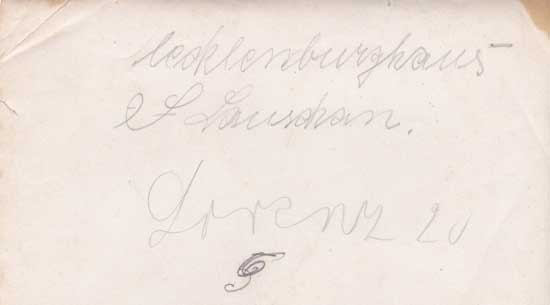 lecklenburghaus
Lauschan.
Lorenz 20